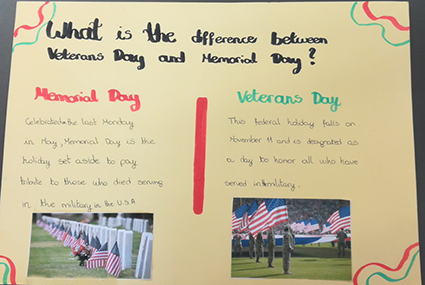 What is the difference between
Veterans Day and Memorial Day?
Memorial Day
Celebrated the last Monday
in May, Memorial Day is the
holiday set aside to pay
tribute to those who died serving
in the military in the U.S.A
Veterans Day
This federal holiday falls on
November 11 and is designated as
a day to honor all who have
served in military.